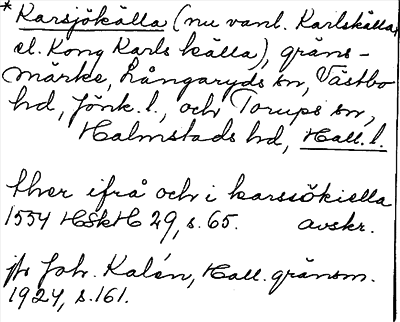 * Karsjökälla (nu vanl. Karlskälla,
el. Kong Karls källa), gräns-
märke, Långaryds sn, Västbo
hd, Jönk. l., och Torups sn,
Halmstads hd, Hall. l.
ther ifrå och i karssökiella
1554 HSkH 29, s. 65. avskr.
jfr Joh. Kalén, Hall. gränsm.
1924, s. 161.